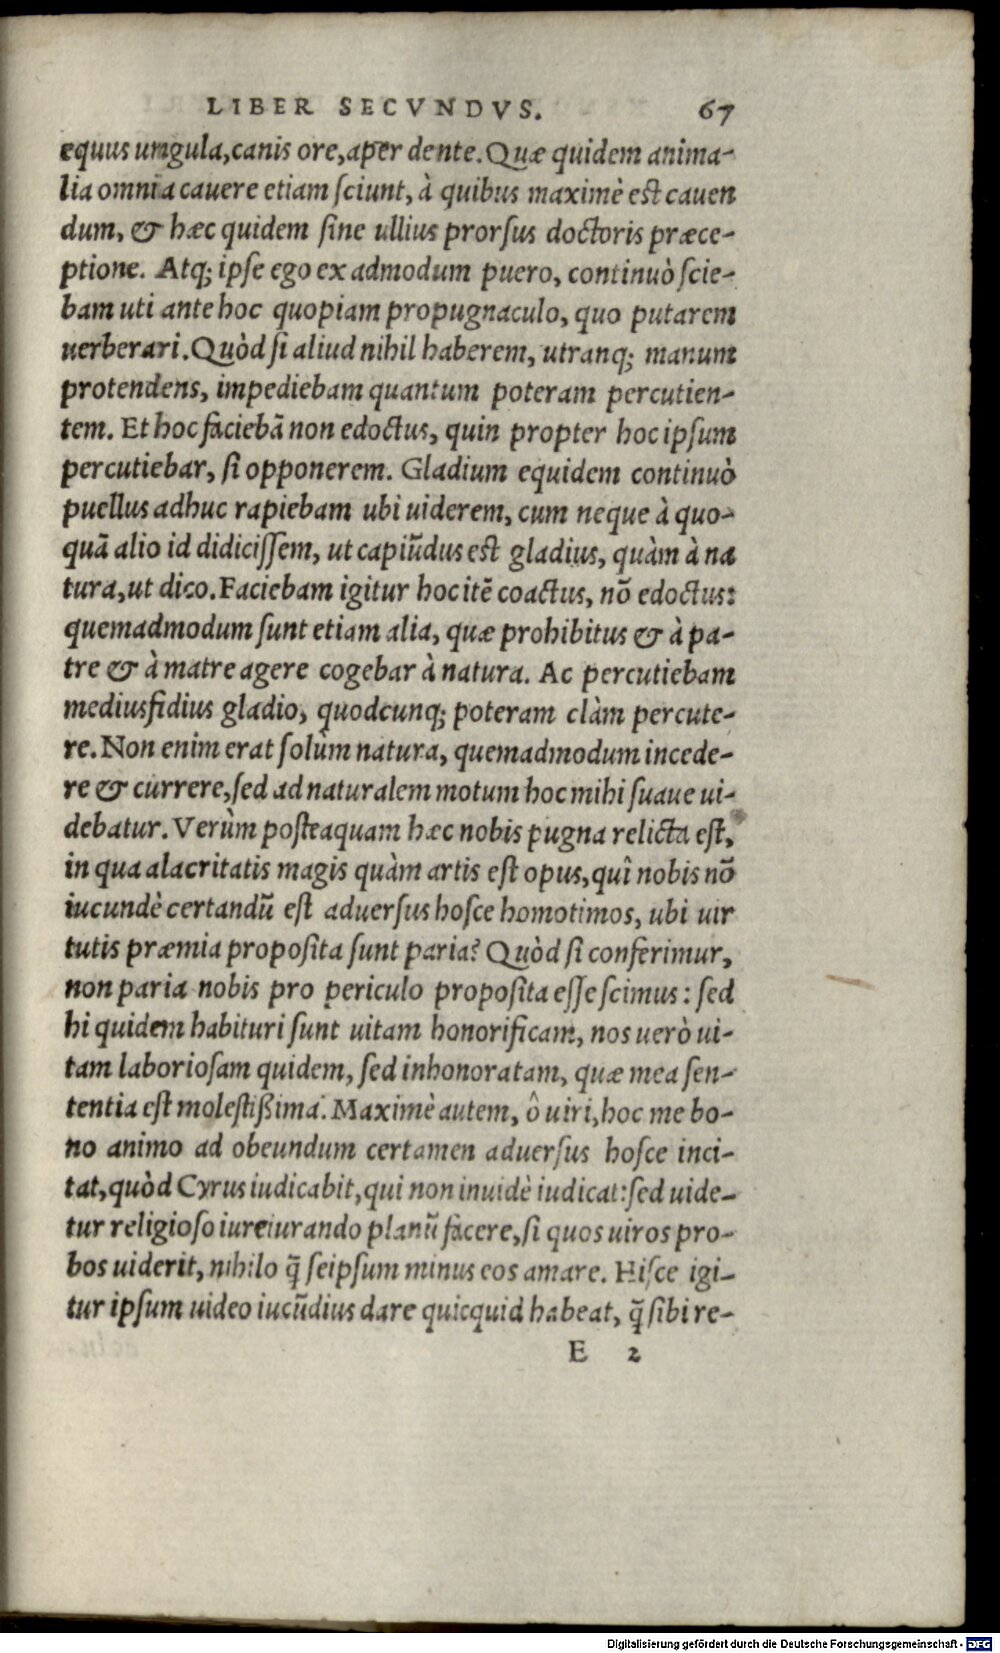 LIBER SECVNDVS. 67
equus ungula, canis ore, aper dente. Quæ quidem anima-
lia omnia cauere etiam sciunt, à quibus maximè est cauen
dum, & hæc quidem sine ullius prorsus doctoris præce-
ptione. Atq; ipse ego ex admodum puero, continuò scie-
bam uti ante hoc quopiam propugnaculo, quo putarem
uerberari. Quòd si aliud nihil haberem, utranq; manum
protendens, impediebam quantum poteram percutien-
tem. Et hoc faciebā non edoctus, quin propter hoc ipsum
percutiebar, si opponerem. Gladium equidem continuò
puellus adhuc rapiebam ubi uiderem, cum neque à quo-
quā alio id didicissem, ut capiūdus est gladius, quàm à na
tura, ut dico. Faciebam igitur hoc itē coactus, nō edoctus:
quemadmodum sunt etiam alia, quæ prohibitus & à pa-
tre & à matre agere cogebar à natura. Ac percutiebam
mediusfidius gladio, quodcunq; poteram clàm percute-
re. Non enim erat solùm natura, quemadmodum incede-
re & currere, sed ad naturalem motum hoc mihi suaue ui-
debatur. Verùm posteaquam hæc nobis pugna relicta est,
in qua alacritatis magis quàm artis est opus, quî nobis nō
iucundè certandū est aduersus hosce homotimos, ubi uir
tutis præmia proposita sunt paria? Quòd si conferimur,
non paria nobis pro periculo proposita esse scimus: sed
hi quidem habituri sunt uitam honorificam, nos uerò ui-
tam laboriosam quidem, sed inhonoratam, quæ mea sen-
tentia est molestißima. Maximè autem, ô uiri, hoc me bo-
no animo ad obeundum certamen aduersus hosce inci-
tat, quòd Cyrus iudicabit, qui non inuidè iudicat: sed uide-
tur religioso iureiurando planū facere, si quos uiros pro-
bos uiderit, nihilo q̄ seipsum minus eos amare. Hisce igi-
tur ipsum uideo iucūdius dare quicquid habeat, q̄ sibi re-
E 2
Digitalisierung gefördert durch die Deutsche Forschungsgemeinschaft - DFG